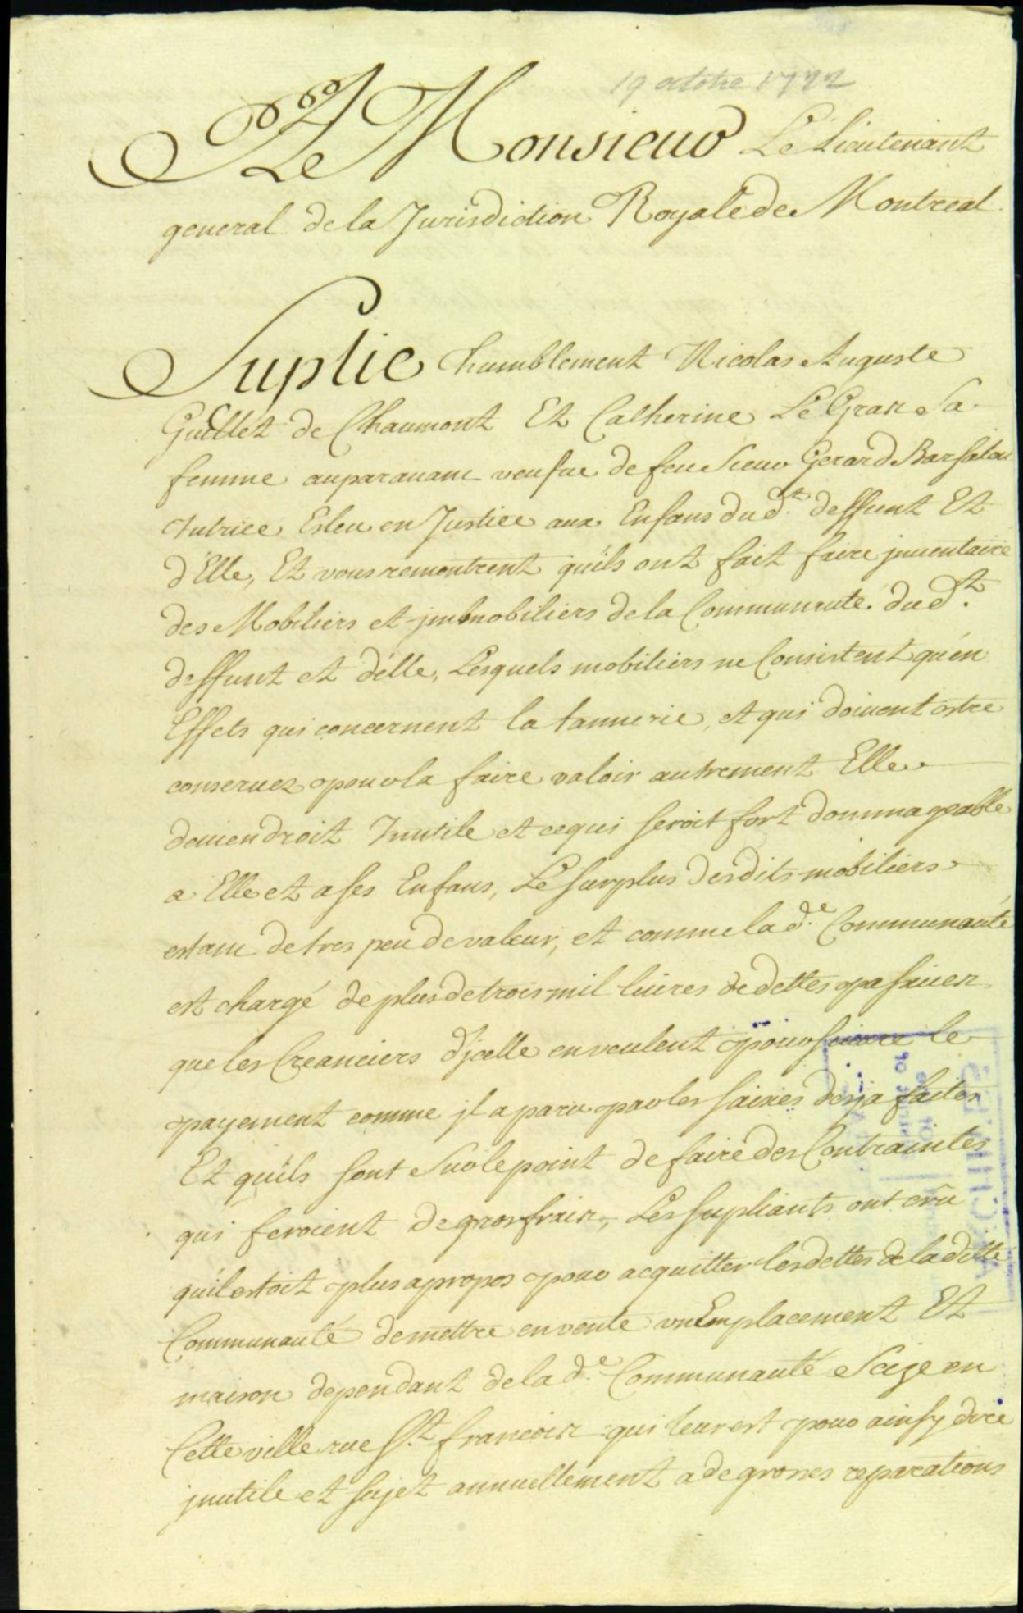 19 octobre 1722
A Monsieur Le Lieutenant
general de la Jurisdiction Royale de Montreal.
Suplie humblement Nicolas Auguste
Guillet de Chaumont Et Catherine Le Gras Sa
femme auparavant veufue de feu Sieur Gerard Barsalou
Tutrice Esleu en Justice aux Enfans du d.t deffunt Et
d'Elle, Et vous remontrent qu'ils ont fait faire jnuentaire
des Mobiliers et jmmobiliers de la Communauté du d.t
deffunt et d'elle, Lesquels mobiliers ne Consistent qu'en
Effets qui concernent la tannerie, et qui doiuent estre
conseruez pour la faire valoir autrement Elle
deuiendroit Jnutile et ce qui seroit fort dommageable
a Elle et a ses Enfans, Le surplus desdits mobiliers
estant de tres peu de valeur, et comme la d.e Communauté
est chargé de plus de trois mil liures de dettes passiues
que les Creanciers d'jcelle en veulent poursuiure le
payement comme jl a paru par les saisies desja faites
Et qu'ils sont Sur le point de faire des Contraintes
qui feroient de gros frais, Les supliants ont crû
qu'il estoit plus apropos pour acquitter les dettes de la ditte
Communauté de mettre en vente vn Emplacement Et
maison dependant de la d.e Communauté Scize en
Cette ville rue St. francois qui leur est pour ainsy dire
jnutile et sujet annuellement a de grosses reparations
ARCHIVES